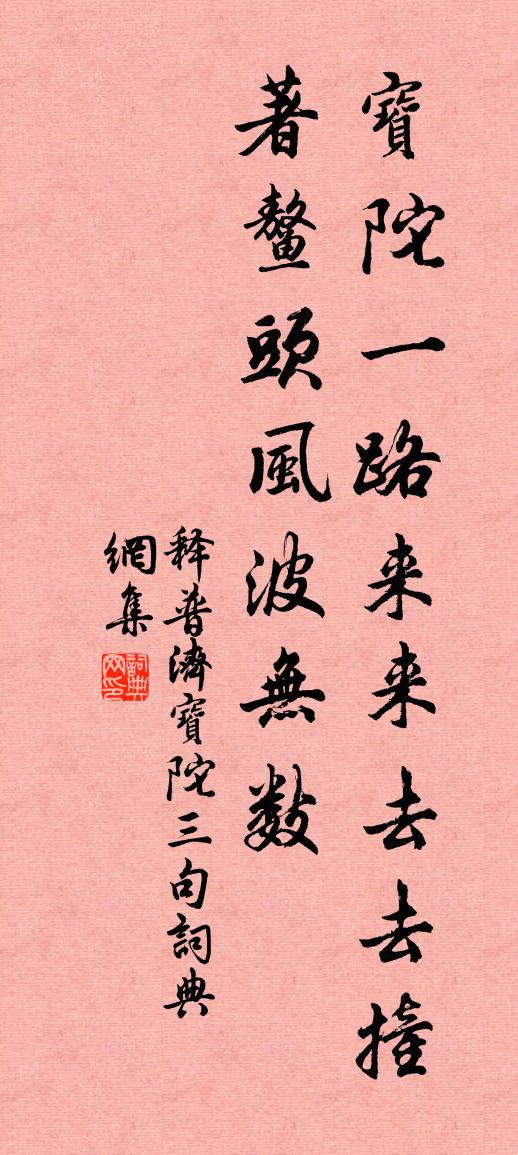 寶陀一路来来去去撞
著鳌頭風波無数
释普濟寶陀三句詞典
網集
詞典網印